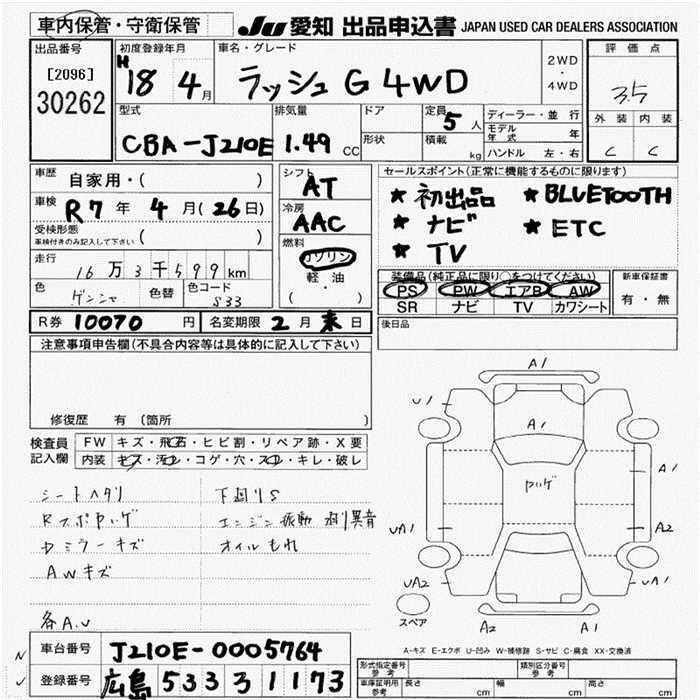 車内保管・守衛保管
JU 愛知 出品申込書 JAPAN USED CAR DEALERS ASSOCIATION
出品番号
[2096]
30262
初度登録年月
H18 4月
車名・グレード
ラッシュ G 4WD
2WD
・
4WD
評価点
3.5
外装 内装
C C
型式
CBA-J210E
排気量
1.49 CC
ドア
形状
定員
5人
積載
kg
ディーラー・並行
モデル年式 年
ハンドル 左・右
車歴
自家用・( )
車検
R7年 4月(26日)
受検形態
車検付きのみ記入して下さい ( )
走行
16万3千599km
色
色替
色コード
S33
シフト
AT
冷房
AAC
燃料
ガソリン
・
軽・油
( )
セールスポイント(正常に機能するものに限ります)
★ 初出品 ★ BLUETOOTH
★ ナビ ★ ETC
★ TV
装備品(純正品に限り○をつけてください)
PS PW エアB AW
SR ナビ TV カワシート
新車保証書
有・無
R券 10070円
名変期限 2月末日
後日品
注意事項申告欄(不具合内容等は具体的に記入して下さい)
修復歴 有(箇所 )
検査員
記入欄
FW キズ・飛石・ヒビ割・リペア跡・X要
内装 キズ・汚れ・コゲ・穴・スレ・キレ・破レ
シートヘタリ 下廻りS
エンジン振動 廻り異音
ミラーキズ オイルもれ
AWキズ
各A.U
A1
U1
A1
A1
UA1
A2
UA2
UA1
スペア
A2
A1
A-キズ E-エクボ U-凹み W-補修跡 S-サビ C-腐食 XX-交換済
車台番号
J210E-0005764
登録番号
広島 533 ろ 1173
形式指定番号
参考
類別区分番号
参考
車庫証明用
参考
長さ cm 幅 cm 高さ cm